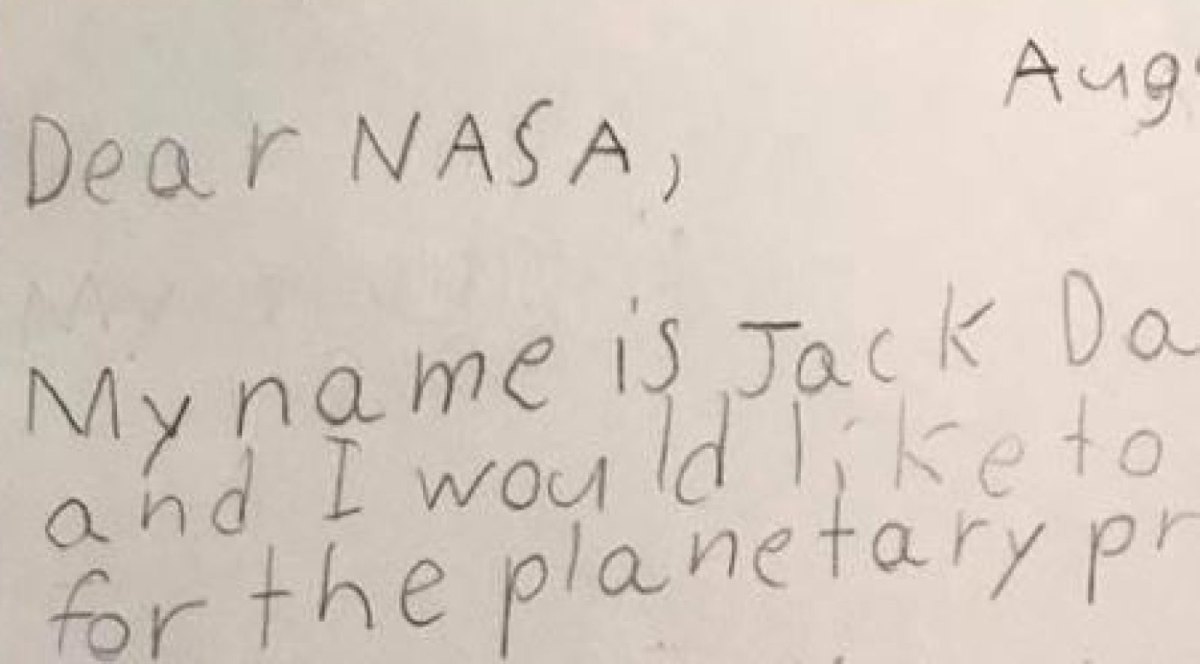 Aug
Dear NASA,
My name is Jack Da
and I would like to
for the planetary pr